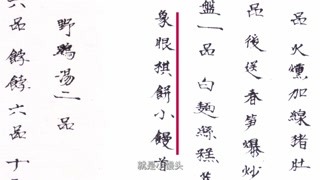 品火燻加線猪肚
品後送春笋爆炒
盤一品白麵絲糕
象眼棋餅小饅首
野鷄湯一品
六品餑餑六品十
就是小馒头